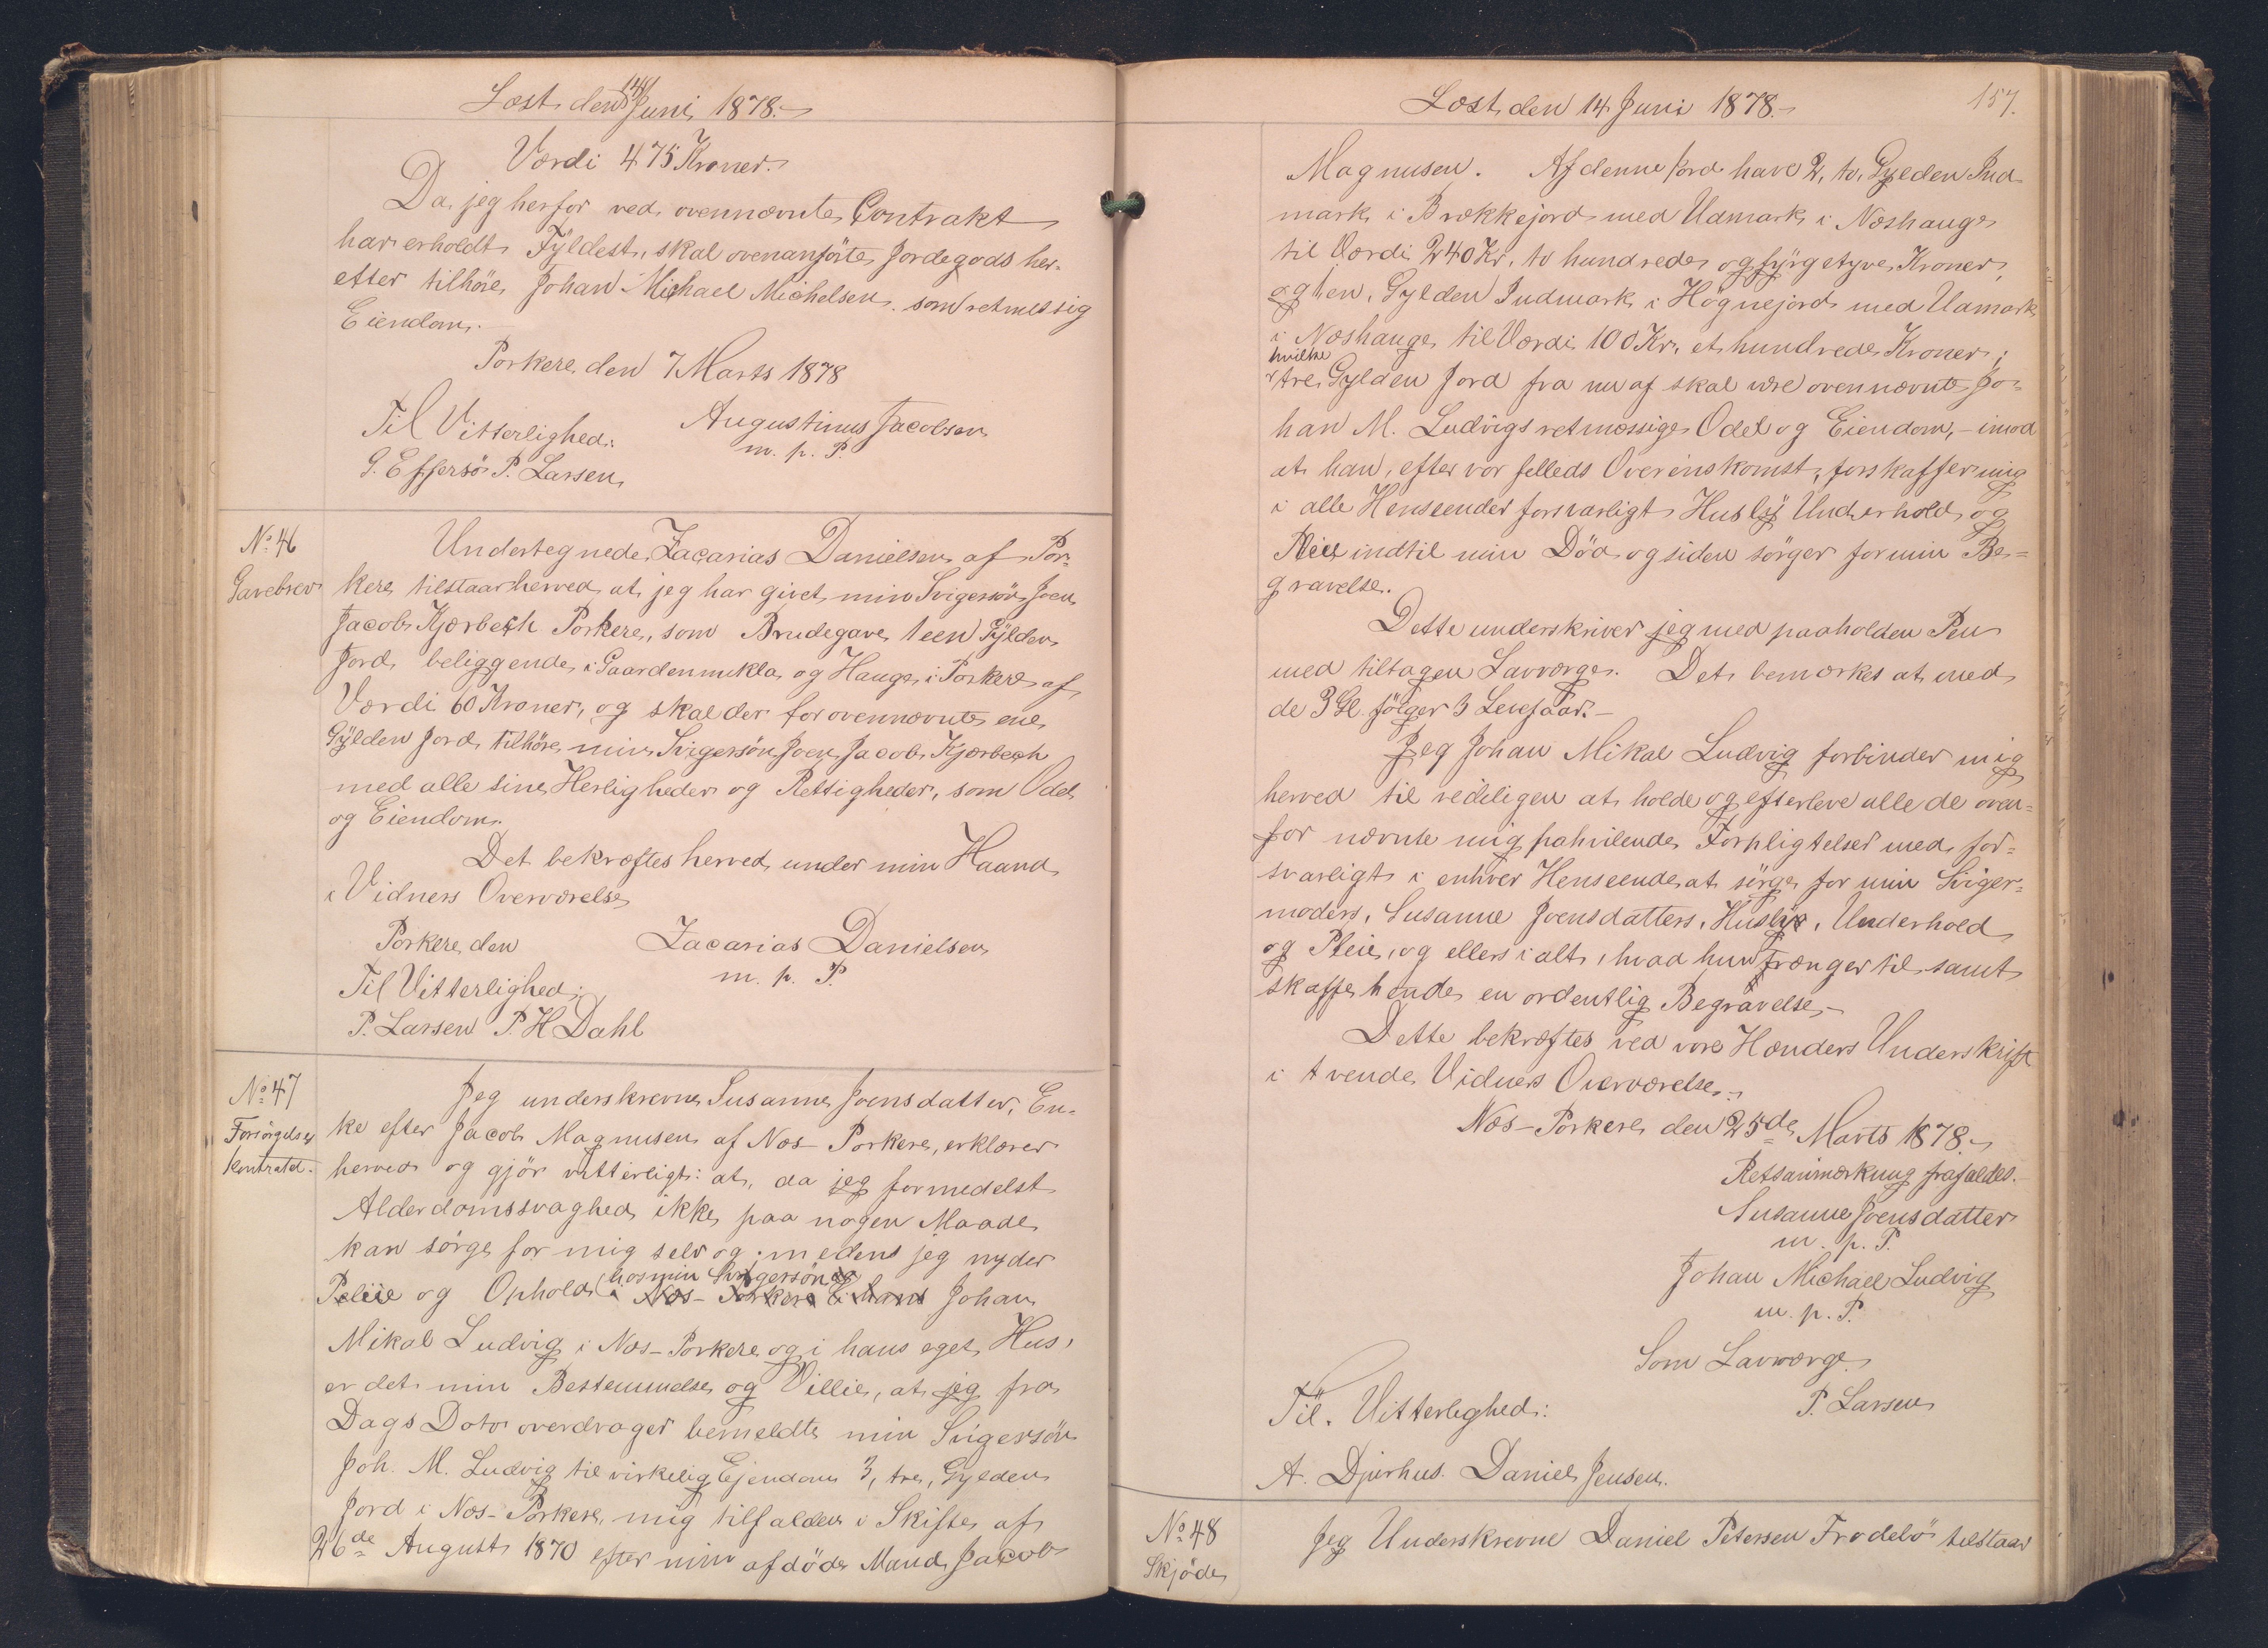 Læst den 14/ Juni 1878.-
Værdi 475 Kroner.
Da jeg herfor ved ovennævnte Contrakt
har erholdt Fyldest, skal ovenanførte Jordegods her-
efter tilhøre Johan Michael Michelsen som retmessig
Eiendom.
Porkere den 7 Marts 1878
Til Vitterlighed: Augustinus Jacobsen
m. p. P.
G. Effersö P. Larsen
No. 46
Gavebrev
Undertegnede Zacarias Danielsen af Por-
kere tilstaar herved at jeg har givet min Svigersön Joen
Jacob Kjærbech Porkere, som Brudegave 1 een Gylden
Jord beliggende i Gaardenmukla og Hauge i Porkere af
Værdi 60 Kroner, og skal der for ovennævnte ene
Gylden Jord tilhöre min Svigersön Joen Jacob Kjærbech
med alle sine Herligheder og Rettigheder, som Odel
og Eiendom.
Det bekræftes herved under min Haand
i Vidners Overværelse
Porkere den Zacarias Danielsen
m. p. P.
Til Vitterlighed:
P. Larsen P. H Dahl
No. 47
Forsörgelses
kontrakt.
Jeg underskrevne Susanne Joensdatter, En-
ke efter Jacob Magnusen af Næs-Porkere, erklærer
herved og gjör vitterligt: at, da jeg formedelst
Alderdomssvaghed ikke paa nogen Maade
kan sörge for mig selv og medens jeg nyder
hos min Svigersön
Pleie og Ophold i Næs-Porkere Johan
Mikal Ludvig i Næs-Porkere og i hans eget Hus,
er det min Bestemmelse og Villie, at jeg fra
Dags Dato overdrager bemeldte min Svigersön
Joh. M. Ludvig til virkelig Ejendom 3, tre, Gylden
Jord i Næs-Porkere, mig tilfalden i Skifte af
26de August 1870 efter min afdöde Mand Jacob
Læst den 14 Juni 1878.-
157.
Magnusen. Af denne Jord have 2, to, Gylden Ind-
mark i Brekkejord med Udmark i Næshauge
til Værdi 240 Kr. to hundrede og fyrgetyve Kroner,
og 1 en, Gylden Indmark i Högnejord med Udmark
i Næshauge til Værdi 100 Kr. et hundrede Kroner;
hvilke
tre Gylden Jord fra nu af skal være ovennævnte Jo-
han M. Ludvigs retmæssige Odel og Eiendom, - imod
at han, efter vor felleds Overenskomst, forskaffer mig
i alle Henseender forsvarligt Husly, Underhold og
Pleie indtil min Död og siden sörger for min Be-
gravelse.
Dette underskriver jeg med paaholden Pen
med tiltagen Lavværge. Det bemærkes at med
de 3 Gl. fölger 3 Leiefaar.-
Jeg Johan Mikal Ludvig forbinder mig
herved til redeligen at holde og efterleve alle de oven-
for nævnte mig pahvilende Forpligtelser med for-
svarligt i enhver Henseende at sörge for min Sviger-
moders, Susanne Joensdatters, Husly, Underhold
og Pleie, og ellers i alt, hvad hun trænger til samt
skaffe hende en ordentlig Begravelse,-
Dette bekræftes ved vore Hænders Underskrift
i tvende Vidners Overværelse.-
Næs-Porkere den 25de Marts 1878.-
Retsanmærkning frafaldes.
Susanne Joensdatter
m. p. P.
Johan Michael Ludvig
m. p. P.
Som Lavværge
Til Vitterlighed: P. Larsen
A. Djurhus. Daniel Jensen.
No. 48
Skjöde
Jeg Underskrevne Daniel Petersen Frodebö tilstaar